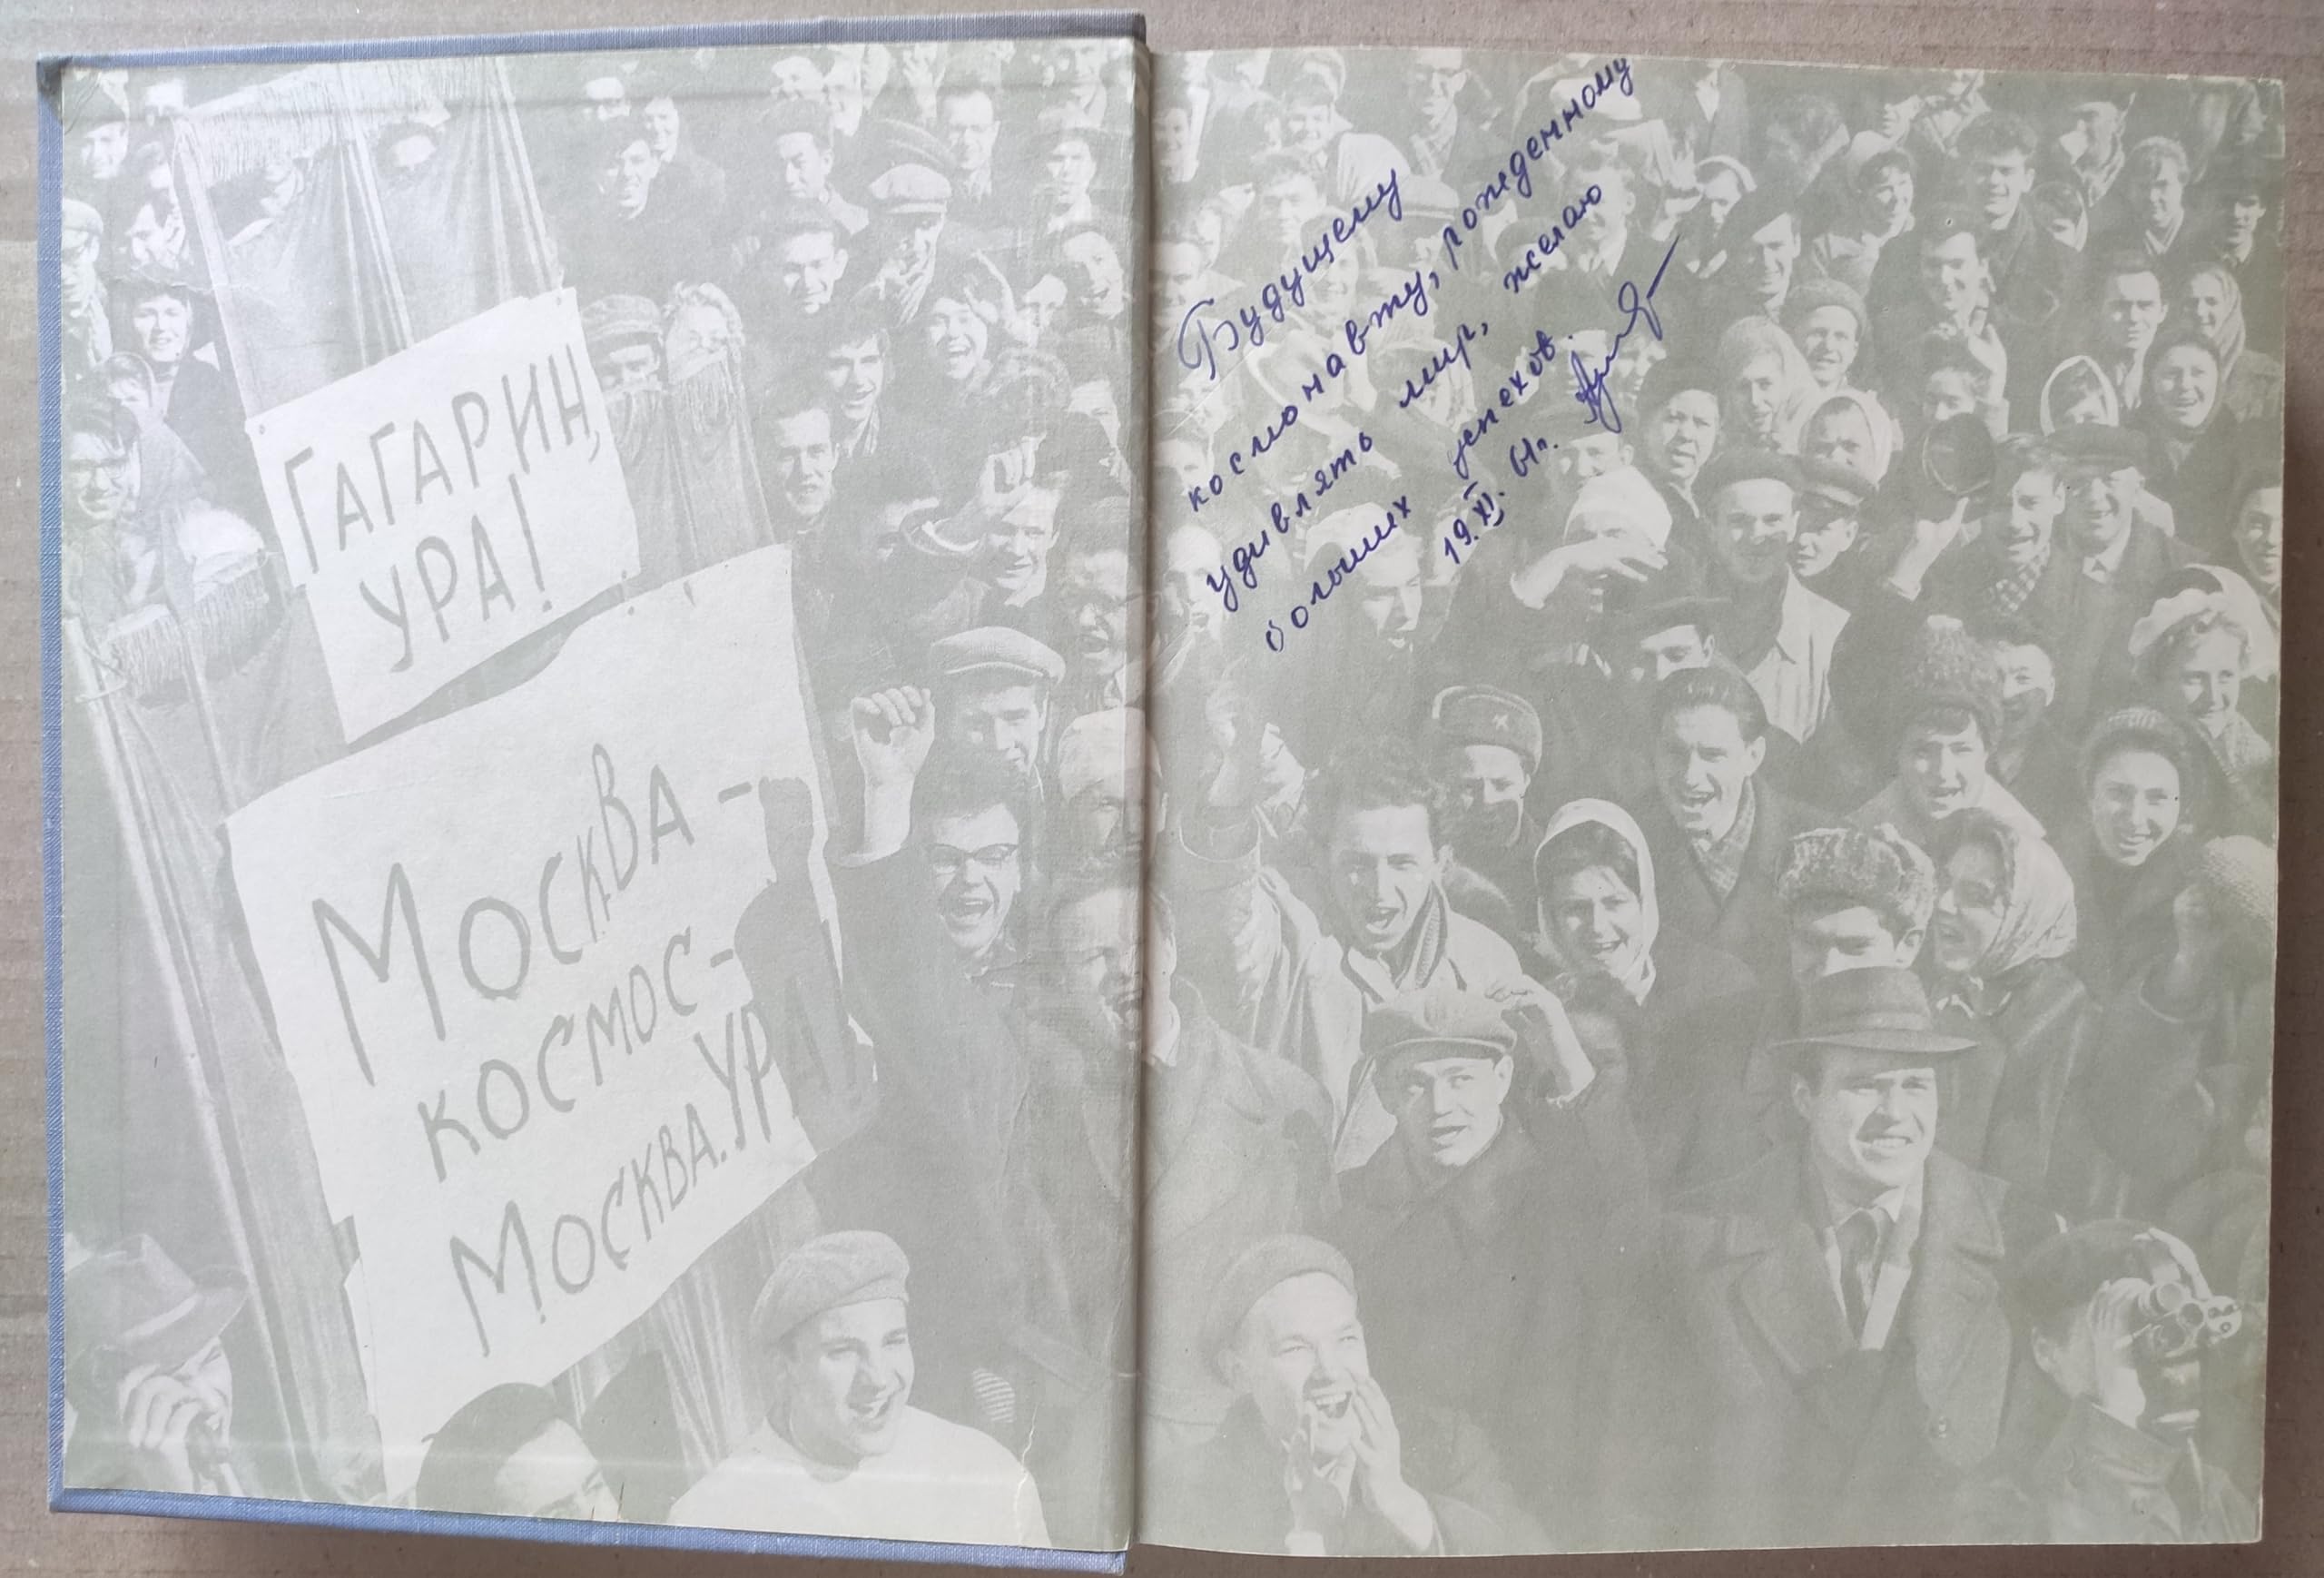 ГАГАРИН,
УРА!
МОСКВА -
КОСМОС-
МОСКВА. УР
Будущему
космонавту, рожденному
удивлять мир, желаю
больших успехов.
19.XI. 61г.